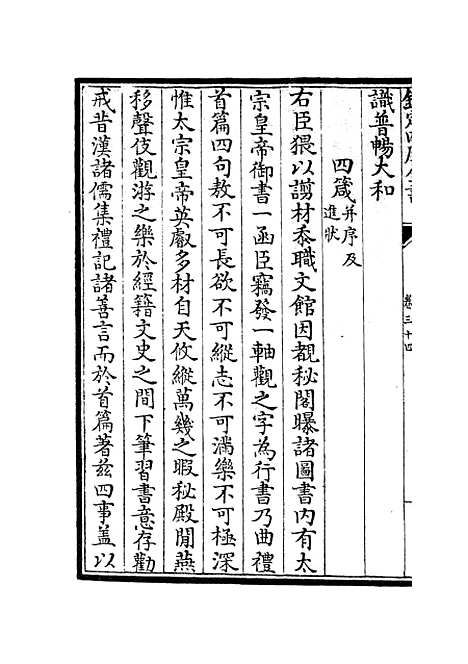 欽定四庫全書
卷三十四
識普暢大和
四箴并序及進狀
右臣猥以謭材忝職文館因覩秘閣曝諸圖書內有太
宗皇帝御書一函臣竊發一軸觀之字為行書乃曲禮
首篇四句敖不可長欲不可縱志不可滿樂不可極深
惟太宗皇帝英叡多材自天攸縱萬幾之暇秘殿閒燕
移聲伎觀游之樂於經籍文史之間下筆習書意存勸
戒昔漢諸儒集禮記諸善言而於首篇著兹四事盖以